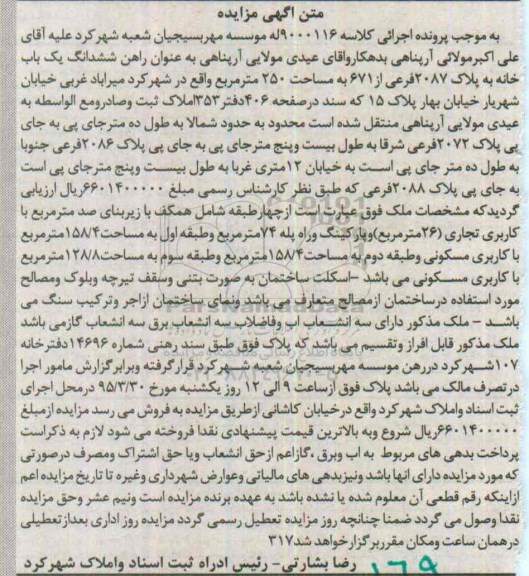 متن آگهی مزایده
به موجب پرونده اجرائی کلاسه ۹۰۰۰۱۱۶له موسسه مهربسیجیان شعبه شهرکرد علیه آقای
علی اکبرمولائی آرپناهی بدهکارواقای عیدی مولایی آرپناهی به عنوان راهن ششدانگ یک باب
خانه به پلاک ۲۰۸۷فرعی از۶۷۱ به مساحت ۲۵۰ مترمربع واقع در شهرکرد میراباد غربی خیابان
شهریار خیابان بهار پلاک ۱۵ که سند درصفحه ۴۰۶دفتر۳۵۳املاک ثبت وصادرومع الواسطه به
عیدی مولایی آرپناهی منتقل شده است محدود به حدود شمالا به طول ده مترجای پی به جای
پی پلاک ۲۰۷۲فرعی شرقا به طول بیست وپنج مترجای پی به جای پی پلاک ۲۰۸۶فرعی جنوبا
به طول ده متر جای پی است به خیابان ۱۲متری غربا به طول بیست وپنج مترجای پی است
به جای پی پلاک ۲۰۸۸فرعی که طبق نظر کارشناس رسمی مبلغ ۶۶۰۱۴۰۰۰۰۰ریال ارزیابی
گردیدکه مشخصات ملک فوق عبارتست ازچهارطبقه شامل همکف با زیربنای صد مترمربع با
کاربری تجاری (۲۶مترمربع)وپارکینگ وراه پله ۷۴مترمربع وطبقه اول به مساحت۱۵۸/۴مترمربع
با کاربری مسکونی وطبقه دوم به مساحت۱۵۸/۴مترمربع وطبقه سوم به مساحت۱۲۸/۸مترمربع
با کاربری مسکونی می باشد -اسکلت ساختمان به صورت بتنی وسقف تیرچه وبلوک ومصالح
مورد استفاده درساختمان ازمصالح متعارف می باشد ونمای ساختمان ازاجر وترکیب سنگ می
باشد - ملک مذکور دارای سه انشعاب اب وفاضلاب سه انشعاب برق سه انشعاب گازمی باشد
ملک مذکور قابل افراز وتقسیم می باشد که پلاک فوق طبق سند رهنی شماره ۱۴۶۹۶دفترخانه
۱۰۷شهرکرد دررهن موسسه مهربسیجیان شعبه شهرکرد قرارگرفته وبرابرگزارش مامور اجرا
درتصرف مالک می باشد پلاک فوق ازساعت ۹ الی ۱۲ روز یکشنبه مورخ ۹۵/۳/۳۰ درمحل اجرای
ثبت اسناد واملاک شهرکرد واقع درخیابان کاشانی ازطریق مزایده به فروش می رسد مزایده ازمبلغ
۶۶۰۱۴۰۰۰۰۰ریال شروع وبه بالاترین قیمت پیشنهادی نقدا فروخته می شود لازم به ذکراست
پرداخت بدهی های مربوط به اب وبرق ،گازاعم ازحق انشعاب ویا حق اشتراک ومصرف درصورتی
که مورد مزایده دارای انها باشد ونیزبدهی های مالیاتی وعوارض شهرداری وغیره تا تاریخ مزایده اعم
ازاینکه رقم قطعی آن معلوم شده یا نشده باشد به عهده برنده مزایده است ونیم عشر وحق مزایده
نقدا وصول می گردد ضمنا چنانچه روز مزایده تعطیل رسمی گردد مزایده روز اداری بعدازتعطیلی
درهمان ساعت ومکان مقرربرگزارخواهد شد۳۱۷
رضا بشارتی- رئیس ادراه ثبت اسناد واملاک شهرکرد
۱۶۹